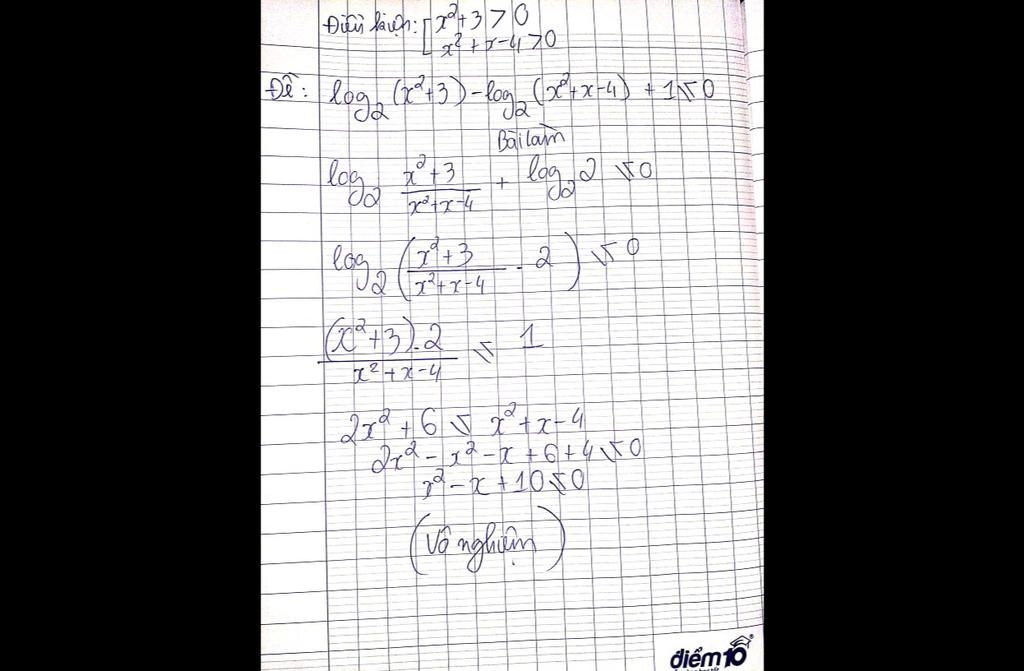 Điều kiện: [ x²+3 > 0
x²+x-4 > 0
Đề: log₂ (x²+3) - log₂ (x²+x-4) + 1 ≤ 0
Bài làm
log₂ (x²+3)/(x²+x-4) + log₂ 2 ≤ 0
log₂ ( (x²+3)/(x²+x-4) . 2 ) ≤ 0
(x²+3).2/(x²+x-4) ≤ 1
2x² + 6 ≤ x²+x-4
2x² - x² - x + 6 + 4 ≤ 0
x² - x + 10 ≤ 0
(Vô nghiệm)
điểm10